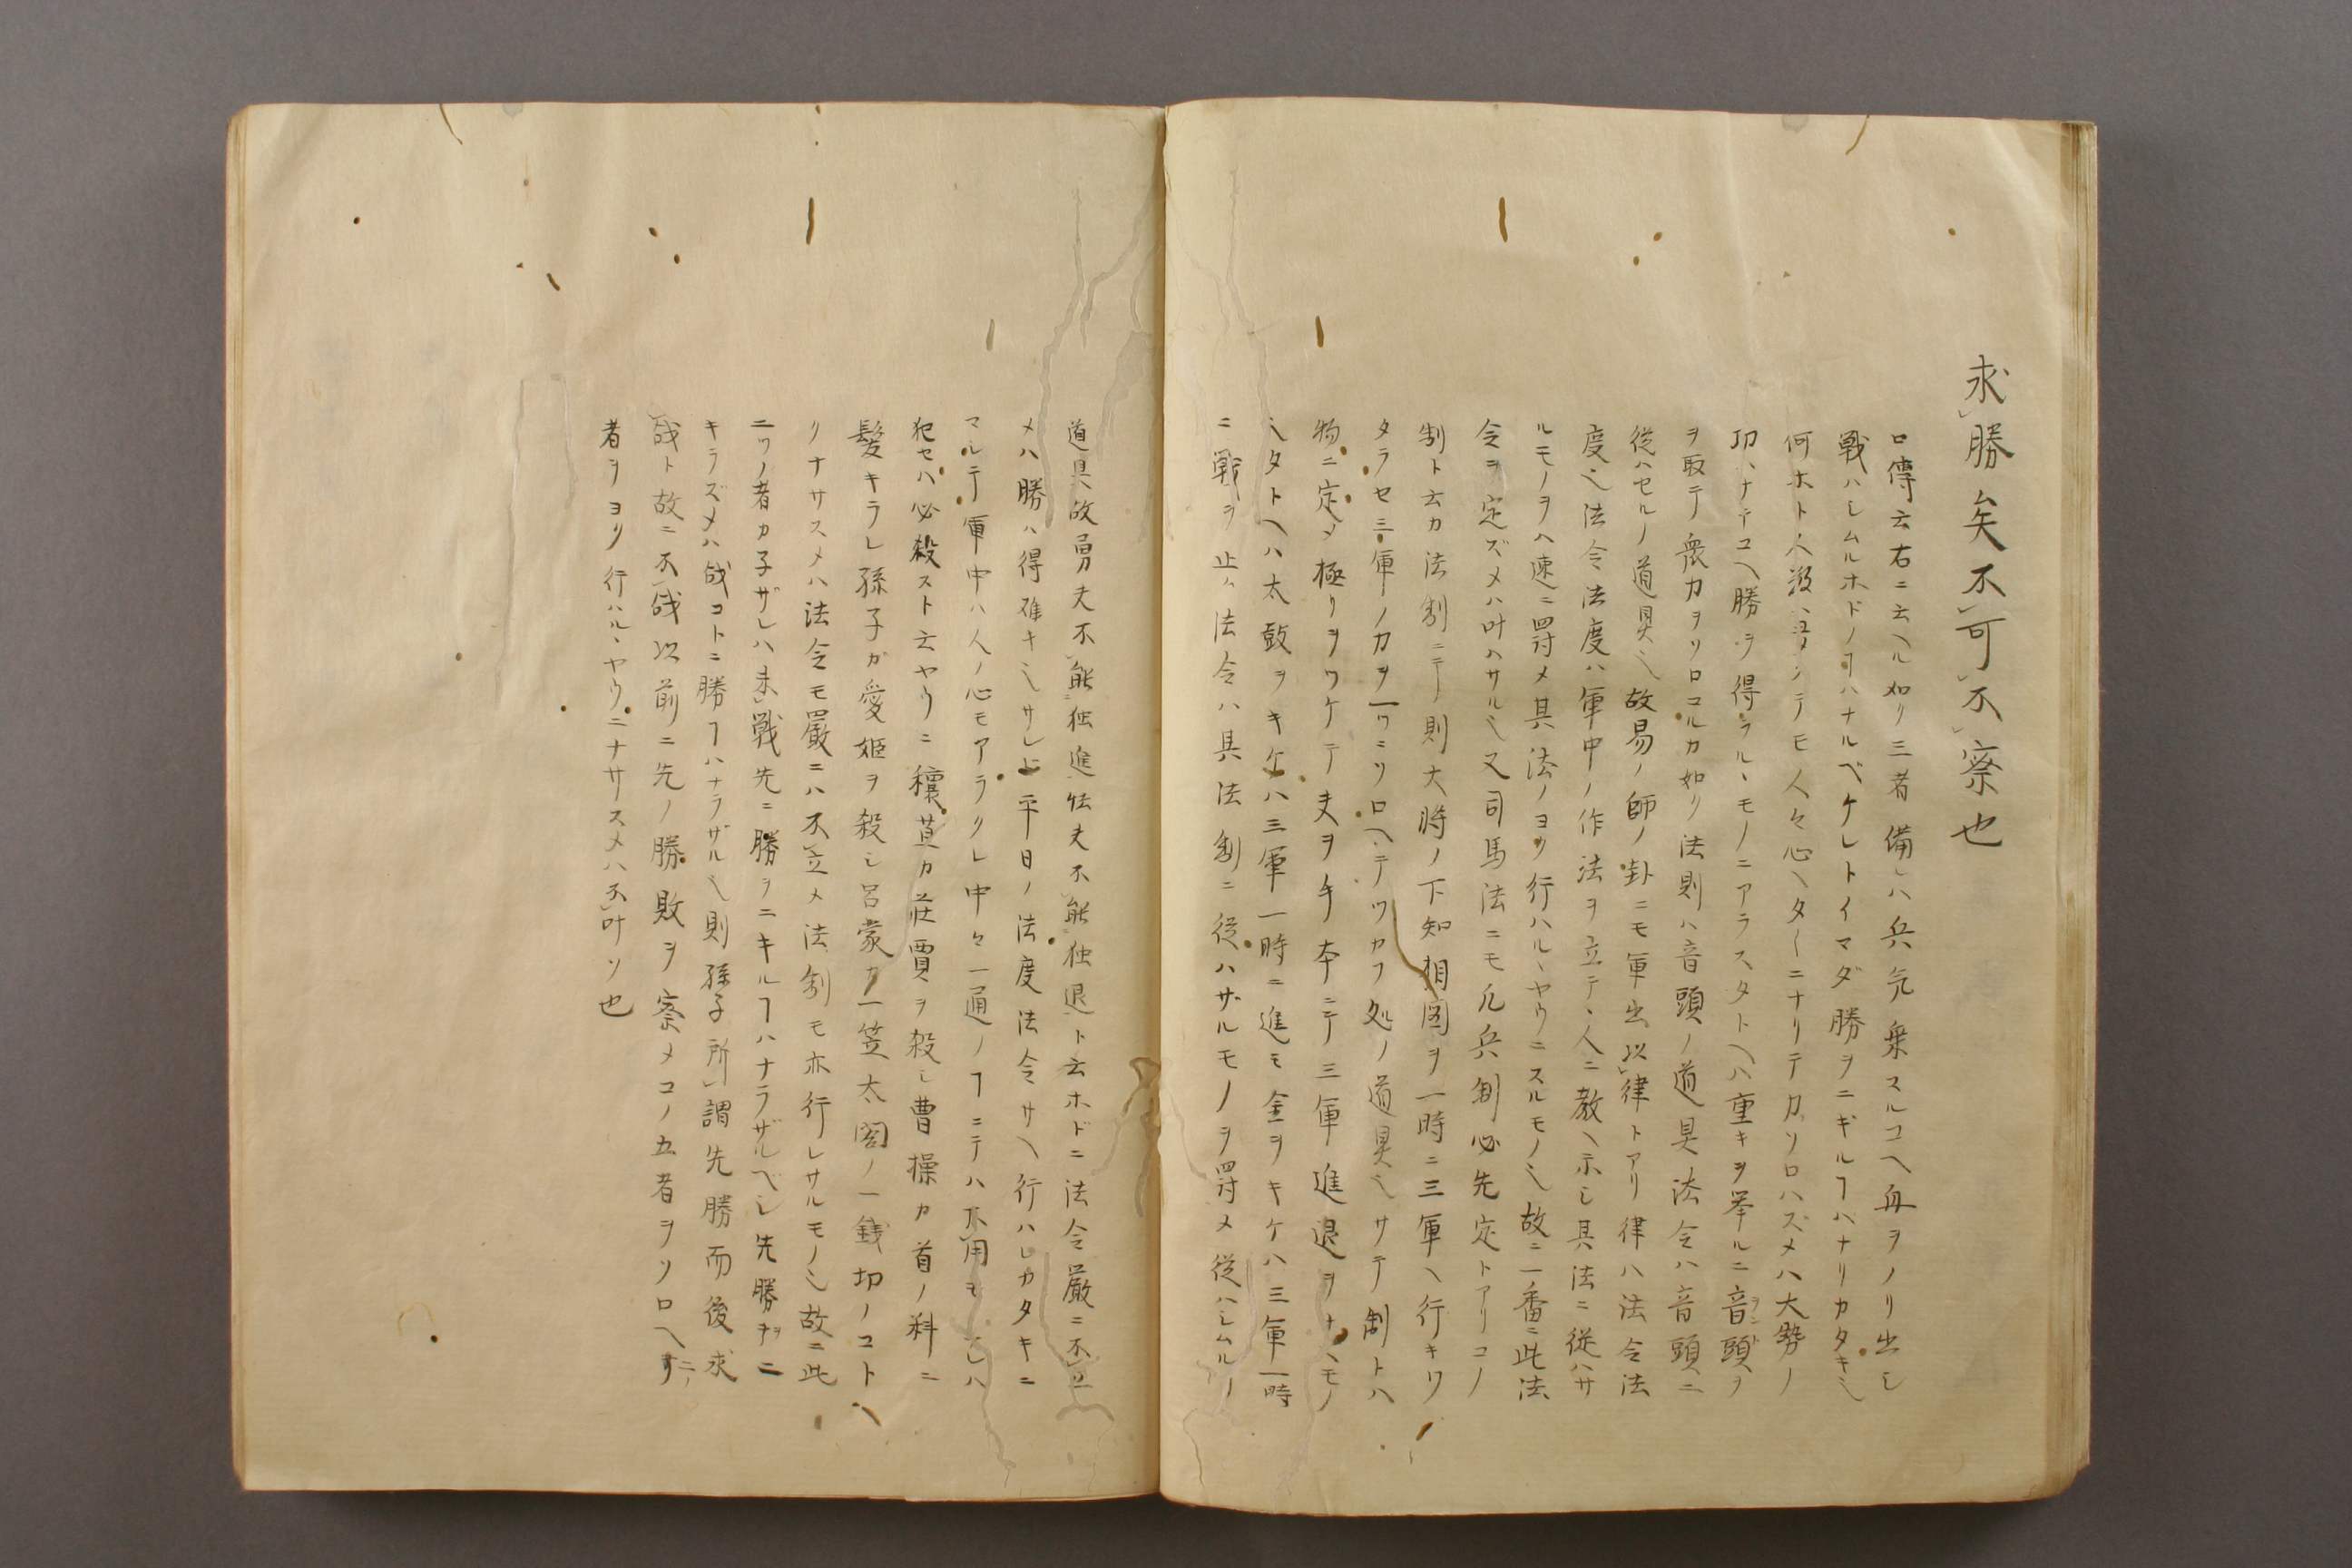 求勝矣不可不察也
口傳云右ニ云ヘル如リ三者備ハ兵気乗スルユヘ舟ヲノリ出シ
戦ハシムルホドノヿハナルベケレトイマダ勝ヲニギルヿハナリカタキ也
何ホト人数ハ
テモ人々心ヘターニナリテ力ソロハズメハ大勢ノ
功ハナキユヘ勝ヲ得ラルヽモノニアラスタトヘハ重キヲ挙ルニ音頭ヲ
ヲ取テ衆力ヲソロユルカ如リ法則ハ音頭ノ道具法令ハ音頭ニ
従ハセルノ道具也故易ノ師ノ卦ニモ軍出以律トアリ律ハ法令法
度也法令法度ハ軍中ノ作法ヲ立テ丶人ニ教ヘ示シ其法ニ従ハサ
ルモノヲハ速ニ罸メ其法ノヨリ行ハルヽヤウニスルモノ也故ニ一番ニ此法
令ヲ定ズメハ叶ハサル也又司馬法ニモ凡兵制必先定トアリコノ
制ト云カ法制ニテ則大将ノ下知相図ヲ一時ニ三軍ヘ行キワ
タラセ三軍ノ力ヲ一ツニソロヘテツカフ処ノ道具也サテ制トハ
物ニ定メ極リヲツケテ夫ヲ手本ニテ三軍進退ヲナスモノ
也タトヘハ太鼓ヲキケハ三軍一時ニ進モ金ヲキケハ三軍一時
ニ戦ヲ止ム法令ハ其法制ニ従ハザルモノヲ罸メ従ハシムルノ
道具故勇夫不能独進怯夫不能独退ト云ホドニ法令厳ニ不立
メハ勝ハ得雖キ也サレ𪜈平日ノ法度法令サヘ行ハレカタキニ
マルテ軍中ハ人ノ心モアラクレ中々一通ノヿニテハ不用モ
犯セハ必殺スト云ヤウニ穰苴カ荘賈ヲ殺シ曹操カ首ノ科ニ
髪キラレ孫子ガ愛姫ヲ殺シ呂蒙カ一笠太閤ノ一銭切ノコト
リナサスメハ法令モ嚴ニハ不立メ法制モ亦行レサルモノ也故ニ此
ニツノ者カ子ザレハ未戦先ニ勝ヲニキルヿハナラザルベシ先勝ヲニ
キラズメハ戦コトニ勝ヿハナラザル也則孫子所謂先勝而後求
戦ト故ニ不戦以前ニ先ノ勝敗ヲ察メコノ五者ヲソロヘ
者ヲヨリ行ハルヽヤウニナサスメハ不叶ソ也